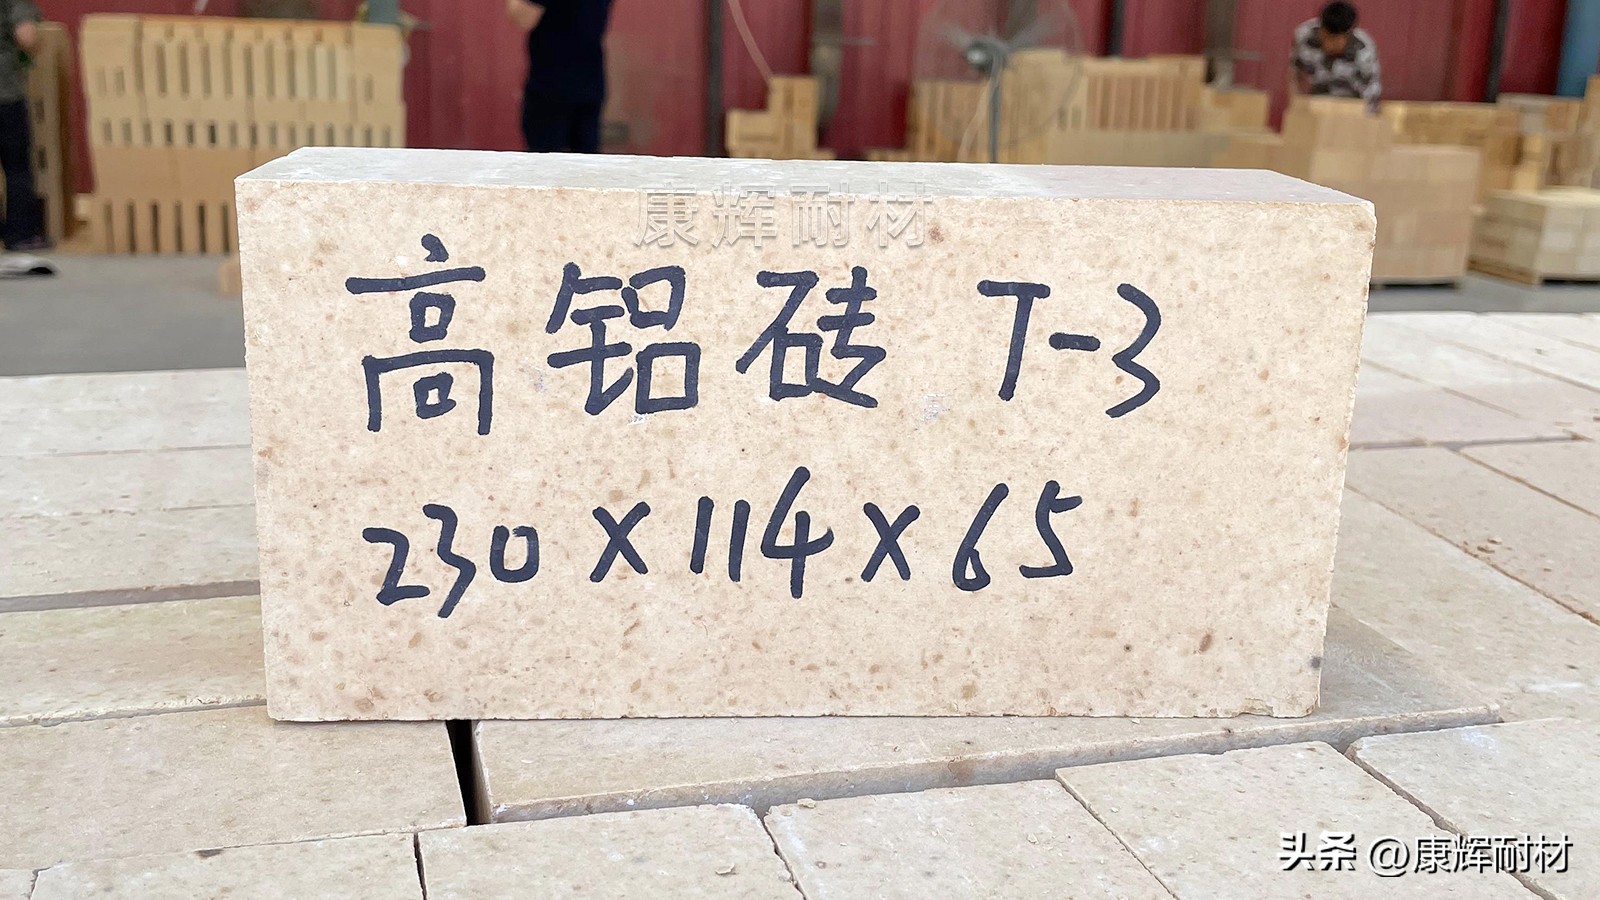 康辉耐材
高铝砖 T-3
230×114×65
头条 @康辉耐材